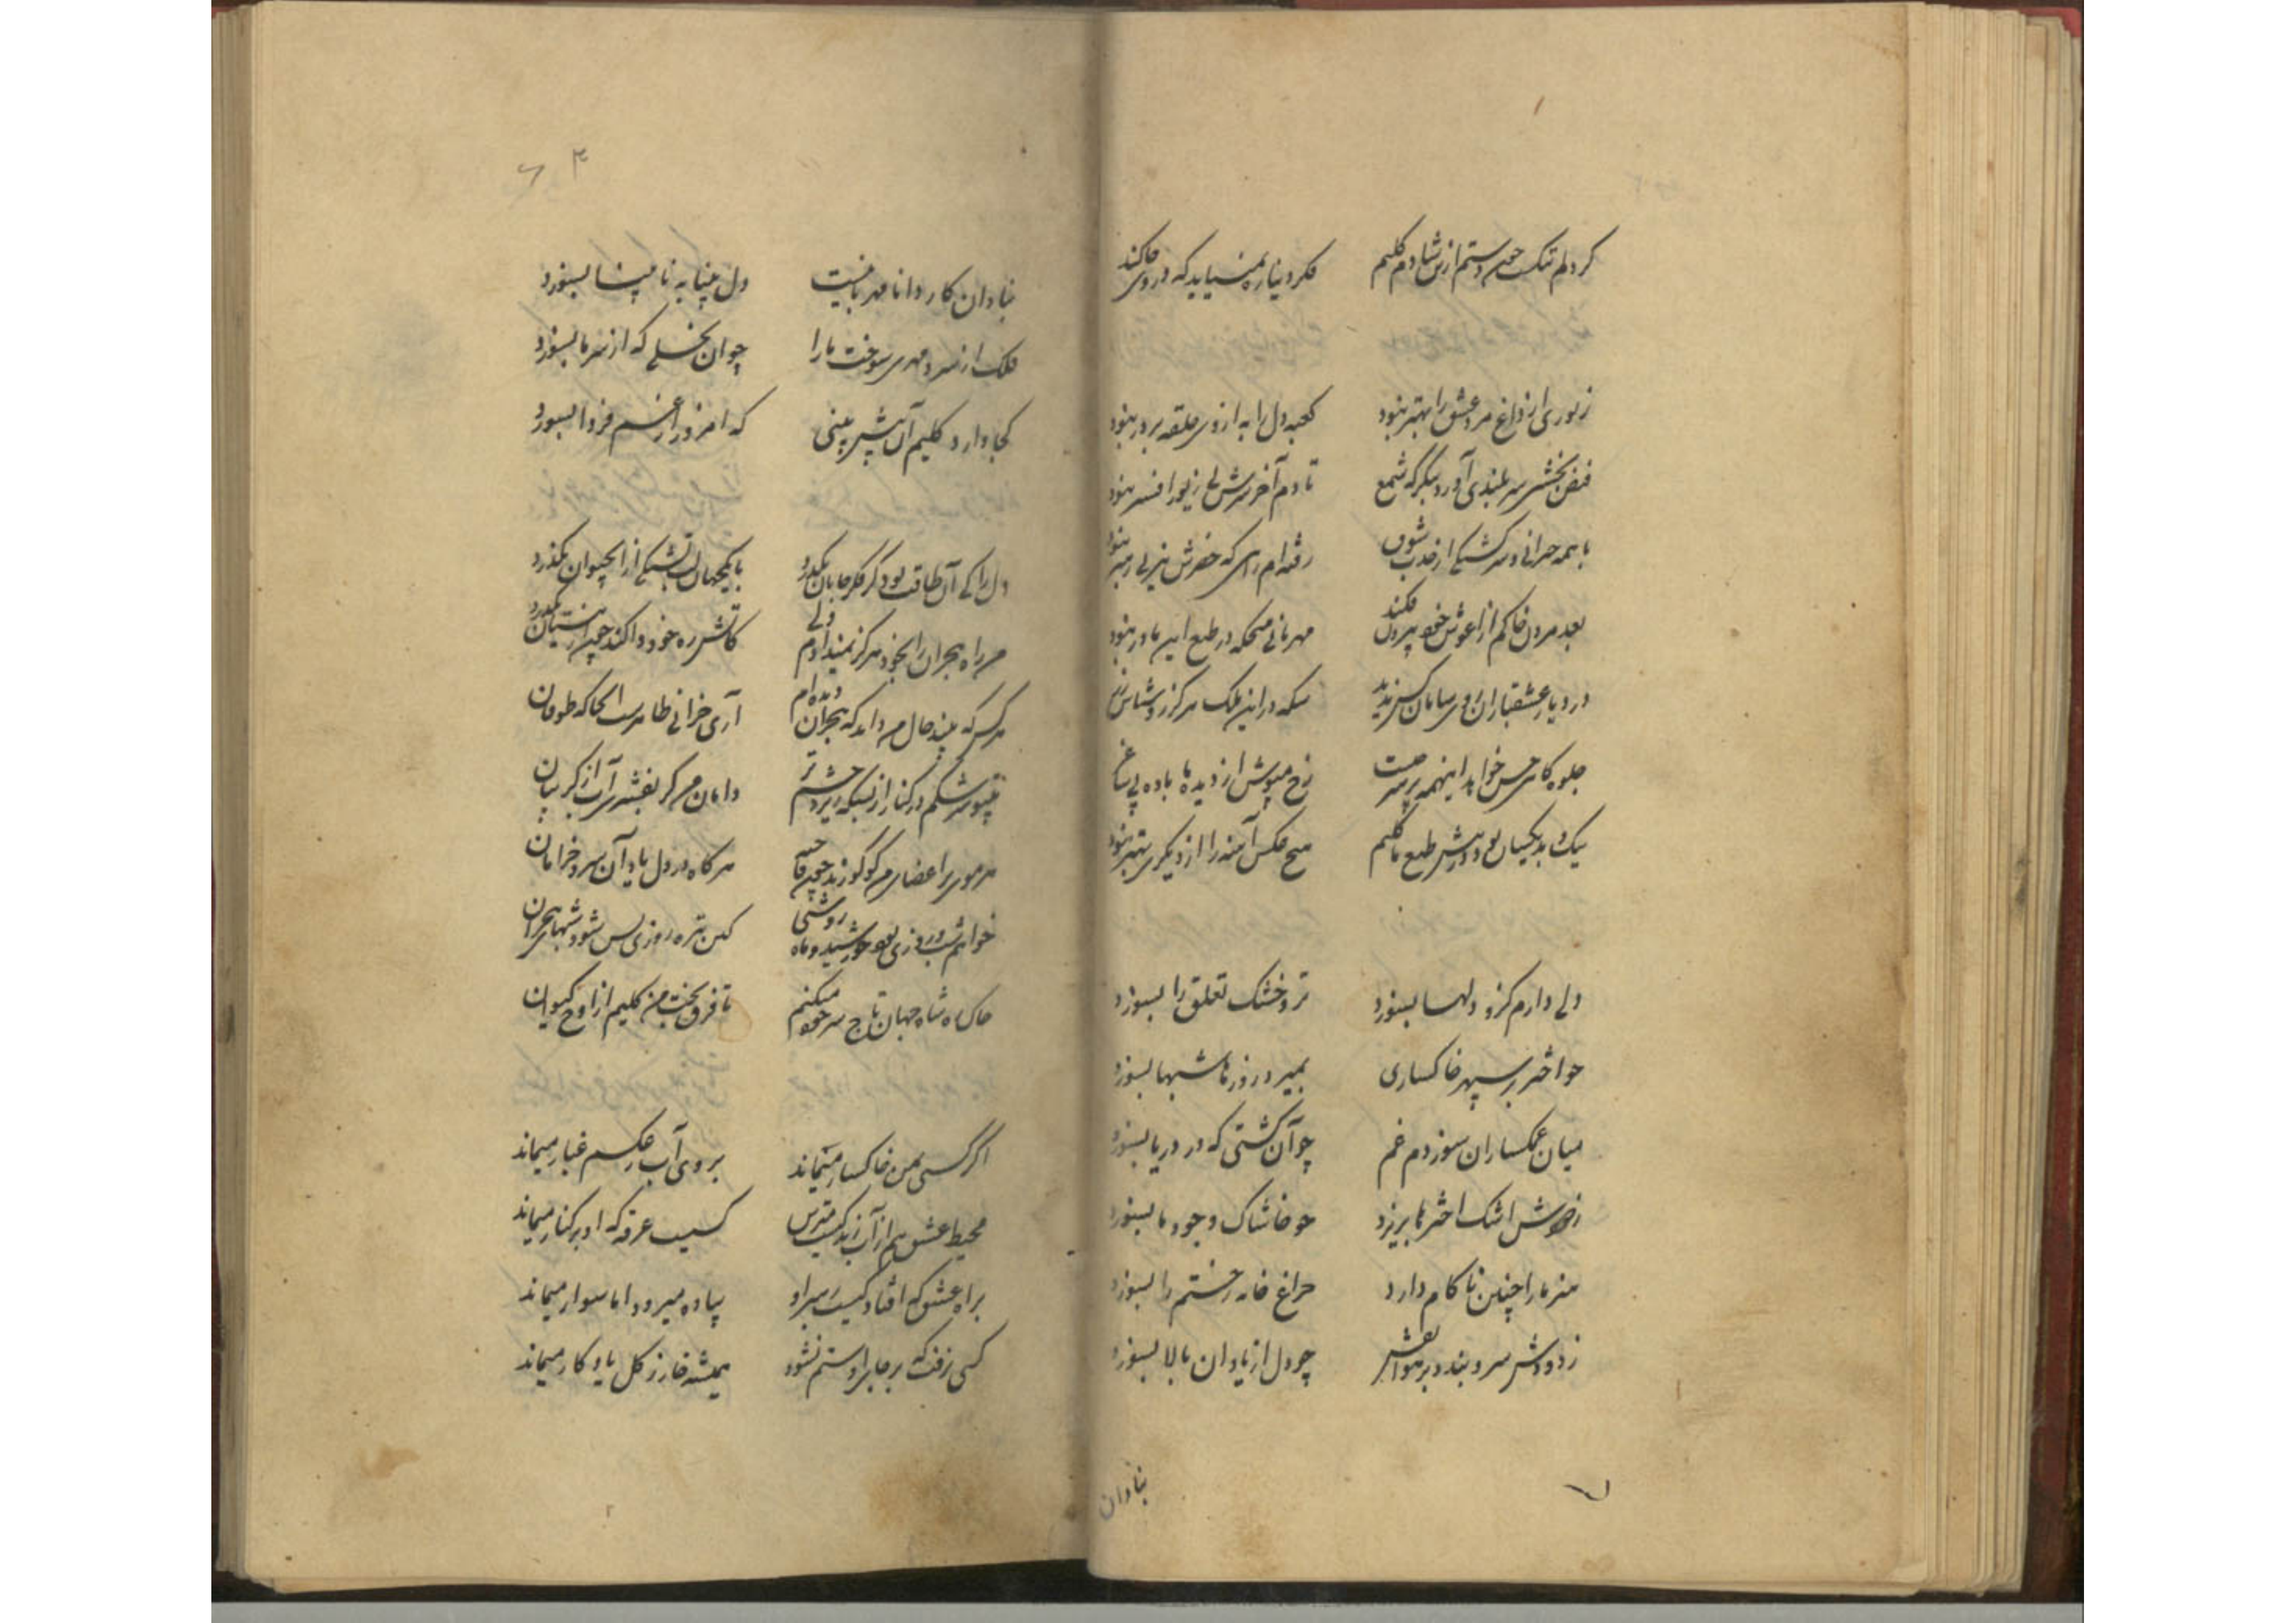 کر دلم تنک چون دستم ازین شادم کلیم فکر دنیا را نمی‌یابد که در وی جا کند
زیوری از داغ مرد عشق را بهتر نبود کعبه دل را به از وی حلقه بر در نبود
فیض بخشی سر بلندی آورد بنکر که شمع تا دم آخر سرش بی زیور افسر نبود
با همه حیرانی و سرکشتکی از جذب شوق رفته‌ام راهی که خضرش نیز پی رهبر نبود
بعد مردن خاکم از آغوش خود بیرون فکند مهربانی هیچکه در طبع این مادر نبود
در دیار عشقبازان روی سامان کس ندید سکه در این ملک هرکز روشناس زر نبود
جلوه کاه حسن خواهد اینهمه رخ مپوش از دیده‌ها باده پی ساغر
نیک و بد یکسان بود در پیش طبع ما کلیم هیچ عکس آینه را از دیکری بهتر نبود
دلی دارم کزو دلها بسوزد تر و خشک تعلق را بسوزد
چو اختر بر سپهر خاکساری بمیرد روزها شبها بسوزد
میان غمکساران سوزدم غم چو آن کشتی که در دریا بسوزد
اشک اختر ها بریزد چو خاشاک وجود ما بسوزد
هنر ما را چنین ناکام دارد چراغ خانه رختم را بسوزد
ز دودش سرو بندد بر هوا نقش چو دل از یاد آن بالا بسوزد
بنادان
بنادان کار دانا مهربانیست دل بینا به نابینا بسوزد
فلک از سرد مهری سوخت ما را چو آن نخلی که از سرما بسوزد
کجا دارد کلیم آن پیش بینی که امروز از غم فردا بسوزد
دل را کی آن طاقت بود کز فکر جانان بکذرد با یکجهان لب تشنکی از آب حیوان بکذرد
من راه هجران را بخود هرکز نمیدادم ولی کاتش ره خود وا کند چون از نیستان بکذرد
هر کس که بیند حال من داند که هجران دیده‌ام آری خرابی ظاهرست آنجا که طوفان
اشکم در کنار از بسکه ریزد چشم تر دامان من کر بفشری آب از کریبان
هر موی بر اعضای من کو کو زند چون فاخته هرکاه در دل یاد آن سرو خرامان
خواهم شب و روزی بود خورشید و ماه روشنی کین تیره روزی بس شود شبهای هجران
خاک راه شاه جهان تاج سر خود میکنم تا فرق بخت من کلیم از اوج کیوان
اکر کسی بمن خاکسار میماند بروی آب ز عکسم غبار میماند
محیط عشق هم از آب زندکیست مترس کسیست غرقه که او بر کنار میماند
براه عشق که افتادکیست رهبر او پیاده میرود اما سوار میماند
کسی نرفت که بر جا برو ستم نشود همیشه خار ز کل یادکار میماند